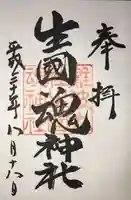 奉拝
生國魂神社
平成三十年八月十八日